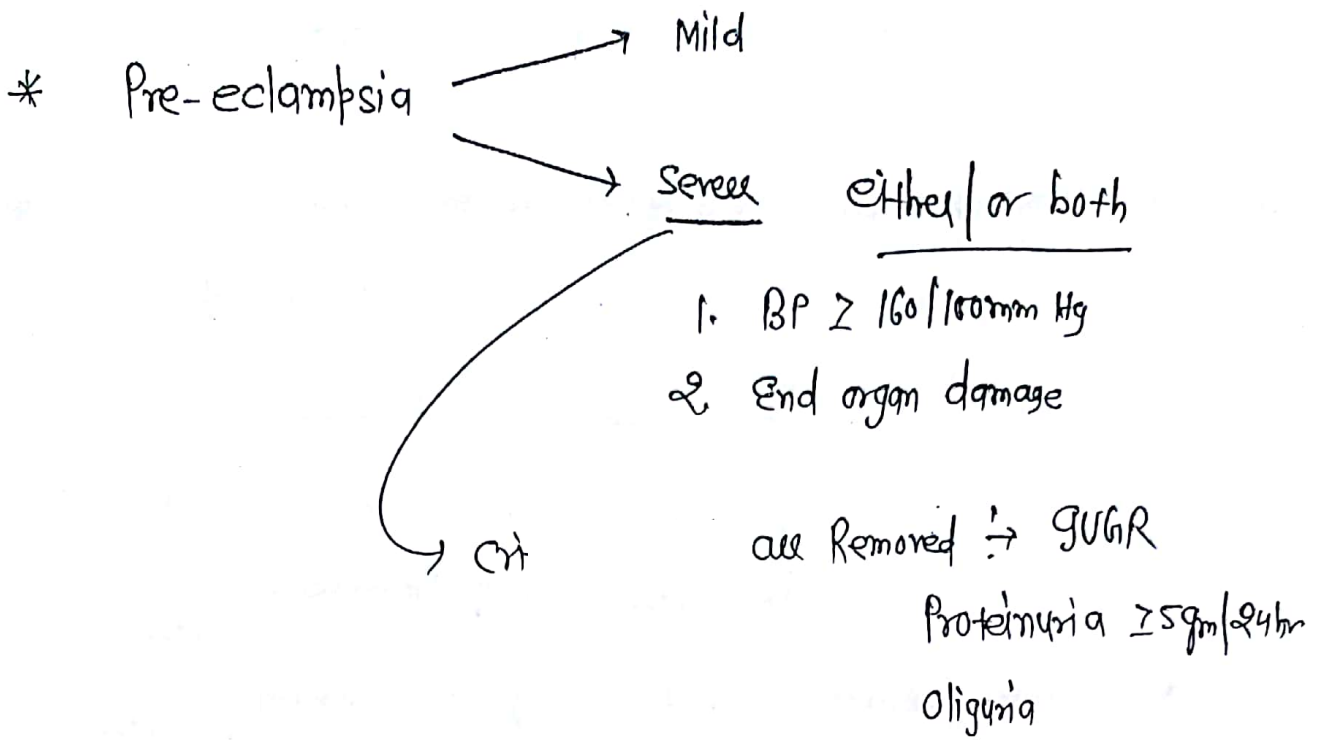 Mild
* Pre-eclampsia
Severe either/or both
1. BP ≥ 160/100mm Hg
2. End organ damage
Cri
are Removed :→ IUGR
Proteinuria ≥5gm/24hr
Oliguria